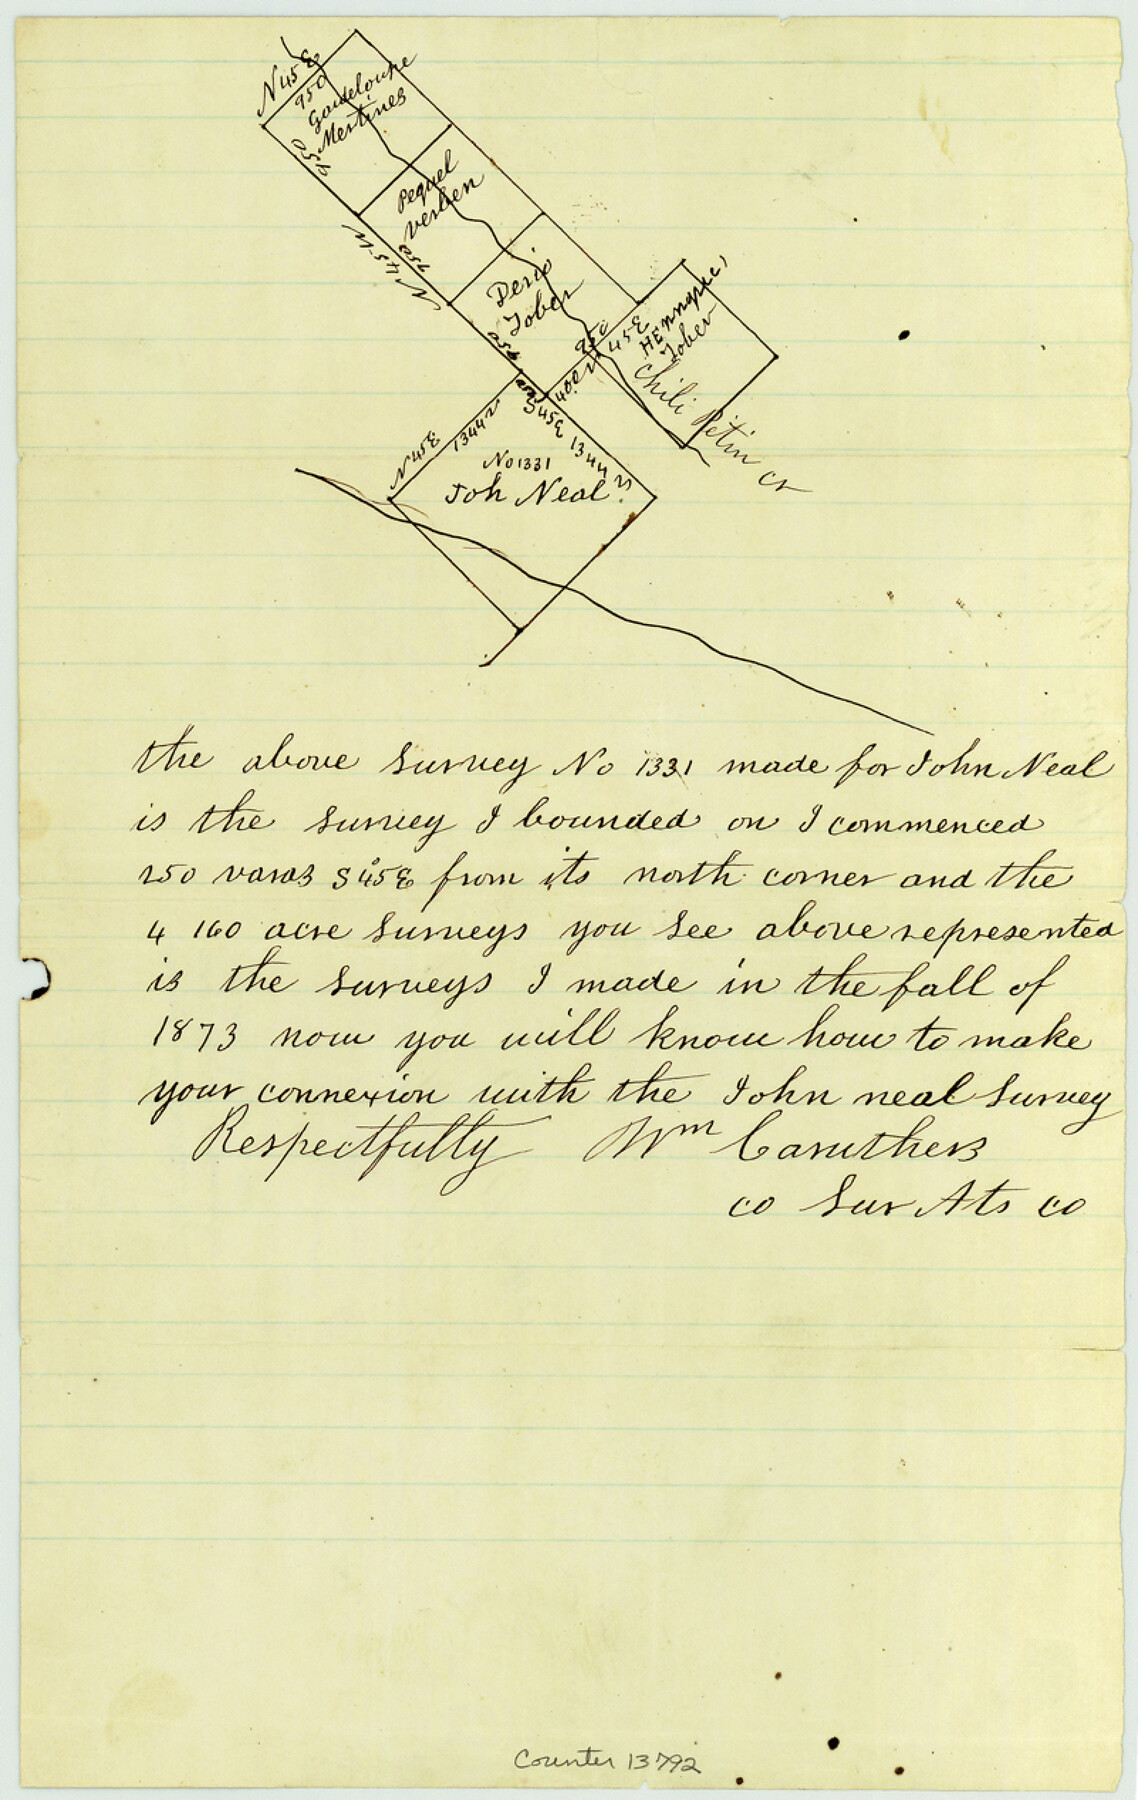 N 45 E
950
Goudeloupe
Mestines
950
Pequel
Verben
950
N 45 W
Deric
Tober
950
950
N 45 E
400
Tober
Chili Petin cr
S 45 E 1344 v
N 45 E
1344 v
No 1331
Joh Neal
the above Survey No 1331 made for John Neal
is the Survey I bounded on I commenced
250 varas S 45 E from its north corner and the
4 160 acre Surveys you See above represented
is the Surveys I made in the fall of
1873 now you will know how to make
your connexion with the John neal Survey
Respectfully Wm Caruthers
co Sur Ats co
Counter 13792